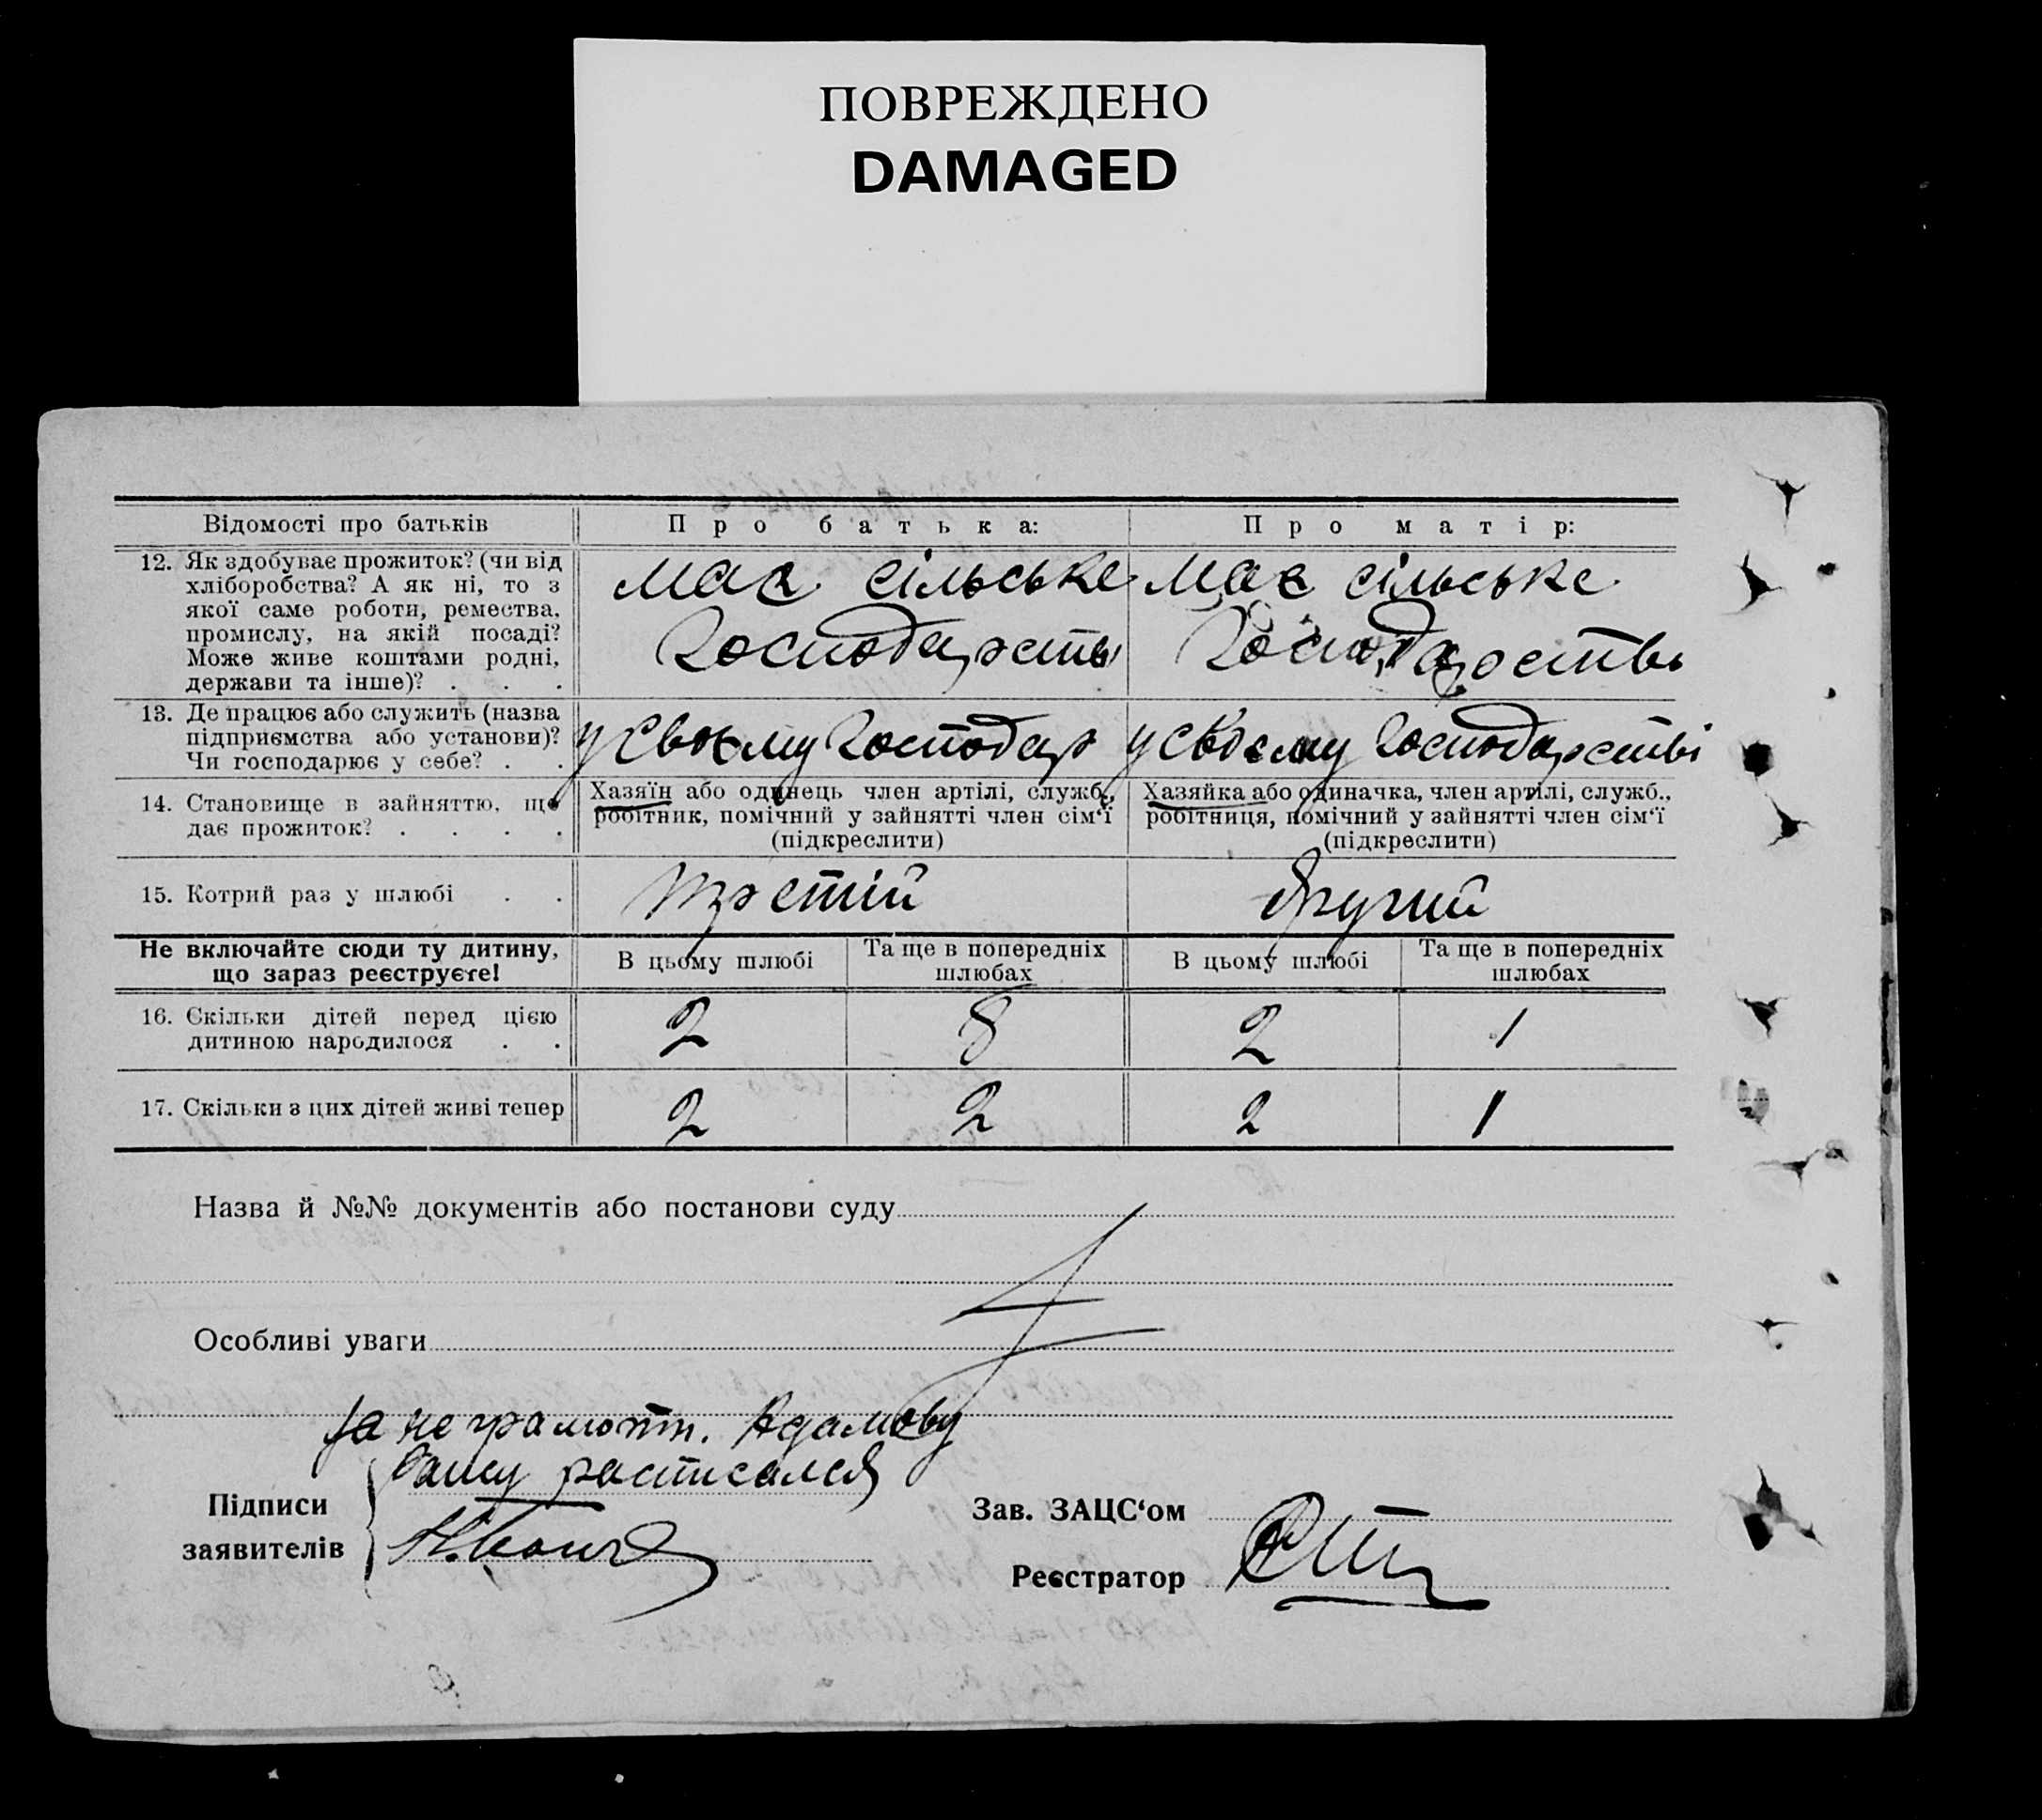 ПОВРЕЖДЕНО
DAMAGED
Відомості про батьків
Про батька:
Про матір:
12. Як здобуває прожиток? (чи від
хліборобства? А як ні, то з
якої саме роботи, ремества,
промислу, на якій посаді?
Може живе коштами родні,
держави та інше)? . . .
має сільське
господарств
має сільське
господарство
13. Де працює або служить (назва
підприємства або установи)?
Чи господарює у себе? . .
у своєму господар
у своєму господарстві
14. Становище в зайняттю, що
дає прожиток? . . . .
Хазяїн або одинець член артілі, служб.,
робітник, помічний у зайнятті член сім'ї
(підкреслити)
Хазяйка або одиначка, член артілі, служб.,
робітниця, помічний у зайнятті член сім'ї
(підкреслити)
15. Котрий раз у шлюбі . .
третій
другий
Не включайте сюди ту дитину,
що зараз реєструєте!
В цьому шлюбі
Та ще в попередніх
шлюбах
В цьому шлюбі
Та ще в попередніх
шлюбах
16. Скільки дітей перед цією
дитиною народилося . .
2
8
2
1
17. Скільки з цих дітей живі тепер
2
2
2
1
Назва й №№ документів або постанови суду
Особливі уваги
За неграмотн. Адамову
расписался
Підписи
заявителів
Зав. ЗАЦС'ом
Реєстратор